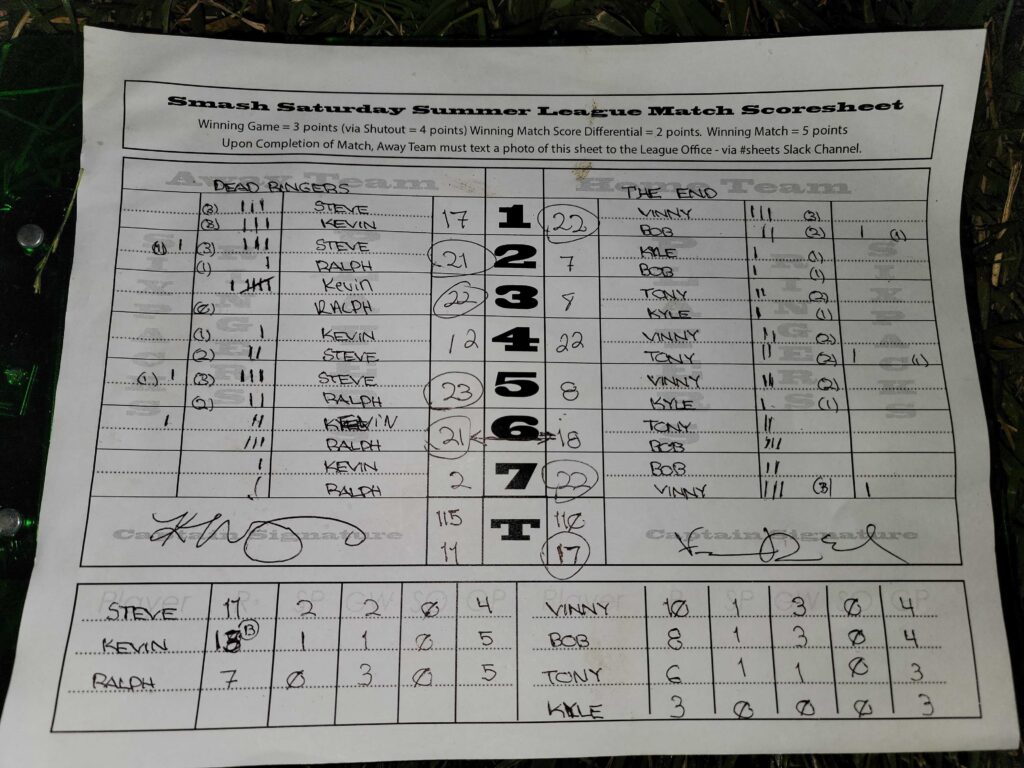 Smash Saturday Summer League Match Scoresheet
Winning Game = 3 points (via Shutout = 4 points) Winning Match Score Differential = 2 points. Winning Match = 5 points
Upon Completion of Match, Away Team must text a photo of this sheet to the League Office - via #sheets Slack Channel.
Away Team DEAD RINGERS Home Team THE END
(3) III STEVE 17 1 22 VINNY III (3)
(3) III KEVIN BOB II (2) I (1)
(1) I (3) III STEVE 21 2 7 KYLE I (1)
(1) I RALPH BOB I (1)
Kevin 22 3 TONY II (2)
RALPH KYLE I (1)
(1) I KEVIN 12 4 22 VINNY II (2)
(2) II STEVE TONY II (2) I (1)
(1) I (3) III STEVE 23 5 8 VINNY II (2)
(2) II RALPH KYLE I (1)
I II KEVIN 21 6 18 TONY II
III RALPH BOB III
I KEVIN 2 7 22 BOB II
I RALPH VINNY III (3) I
SIXPACKS RINGERS RINGERS SIXPACKS
Captain Signature 115 T 110 Captain Signature
11 17
Player R+ SP GW SO GP Player R SP GW SO GP
STEVE 17 2 2 0 4 VINNY 10 1 3 0 4
KEVIN 13 1 1 0 5 BOB 8 1 3 0 4
RALPH 7 0 3 0 5 TONY 6 1 1 0 3
KYLE 3 0 0 0 3